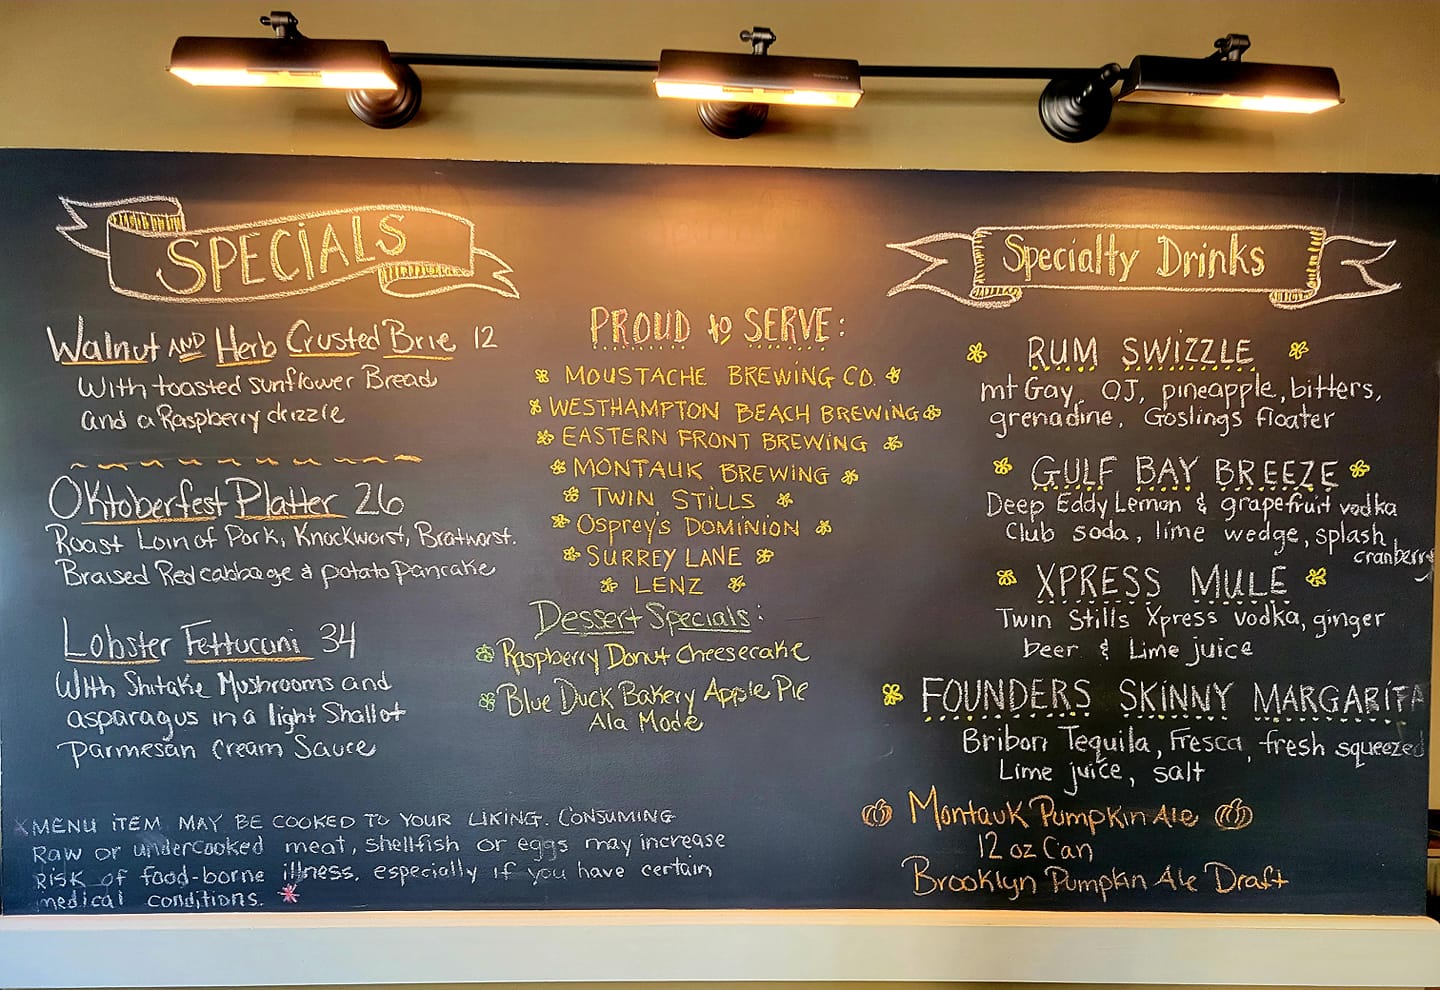 SPECIALS
Walnut AND Herb Crusted Brie 12
With toasted sunflower Bread
and a Raspberry drizzle
Oktoberfest Platter 26
Roast Loin of Pork, Knockworst, Bratworst.
Braised Red cabbage & potato pancake
Lobster Fettucani 34
With Shitake Mushrooms and
asparagus in a light Shallot
parmesan cream Sauce
MENU ITEM MAY BE COOKED TO YOUR LIKING. CONSUMING
Raw or undercooked meat, shellfish or eggs may increase
RISK of food-borne illness, especially if you have certain
medical conditions. *
PROUD to SERVE:
MOUSTACHE BREWING CO.
WESTHAMPTON BEACH BREWING
EASTERN FRONT BREWING
MONTAUK BREWING
TWIN STILLS
Osprey's DOMINION
SURREY LANE
LENZ
Dessert Specials:
Raspberry Donut Cheesecake
Blue Duck Bakery Apple Pie
Ala Mode
Specialty Drinks
RUM SWIZZLE
mt Gay, OJ, pineapple, bitters,
grenadine, Goslings floater
GULF BAY BREEZE
Deep Eddy Lemon & grapefruit vodka
Club soda, lime wedge, splash
cranberry
XPRESS MULE
Twin Stills Xpress vodka, ginger
beer & Lime juice
FOUNDERS SKINNY MARGARITA
Bribon Tequila, Fresca, fresh squeezed
Lime juice, salt
Montauk Pumpkin Ale
12 oz Can
Brooklyn Pumpkin Ale Draft